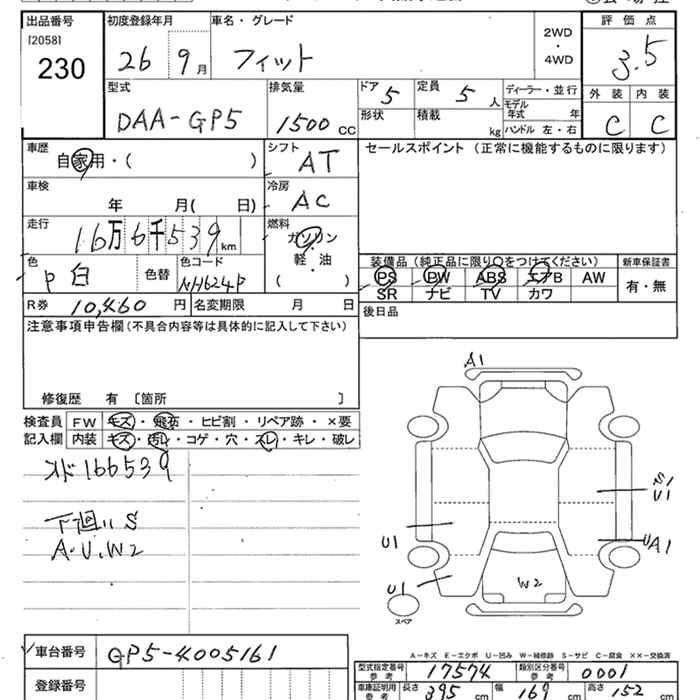 出品番号 初度登録年月 車名・グレード 評価点
[2058]
230 26 9月 フィット 2WD・4WD 3.5
型式 排気量 ドア 5 定員 5人 ディーラー・並行 外装 内装
DAA-GP5 1500cc 形状 積載 kg モデル年式 年 C C
ハンドル 左・右
車歴 自家用・( ) シフト AT セールスポイント (正常に機能するものに限ります)
車検 年 月( 日) 冷房 AC
走行 16万6千539km 燃料 ガソリン
軽・油
( )
色 P白 色替 色コード NH624P
装備品 (純正品に限り○をつけてください) 新車保証書
PS PW ABS エアB AW 有・無
SR ナビ TV カワ
R券 10,460円 名変期限 月 日 後日品
注意事項申告欄(不具合内容等は具体的に記入して下さい)
修復歴 有 〔箇所 〕
検査員 FW キズ・飛石・ヒビ割・リペア跡・×要
記入欄 内装 キズ・汚レ・コゲ・穴・スレ・キレ・破レ
メド166539
下廻りS
A・U・W2
A1
S1
U1
U1
UA1
U1
W2
スペア
A-キズ E-エクボ U-凹み W-補修跡 S-サビ C-腐食 ××-交換済
車台番号 GP5-4005161
型式指定番号 参考 17574 類別区分番号 参考 0001
登録番号
車庫証明用 参考 長さ 395cm 幅 169cm 高さ 152cm